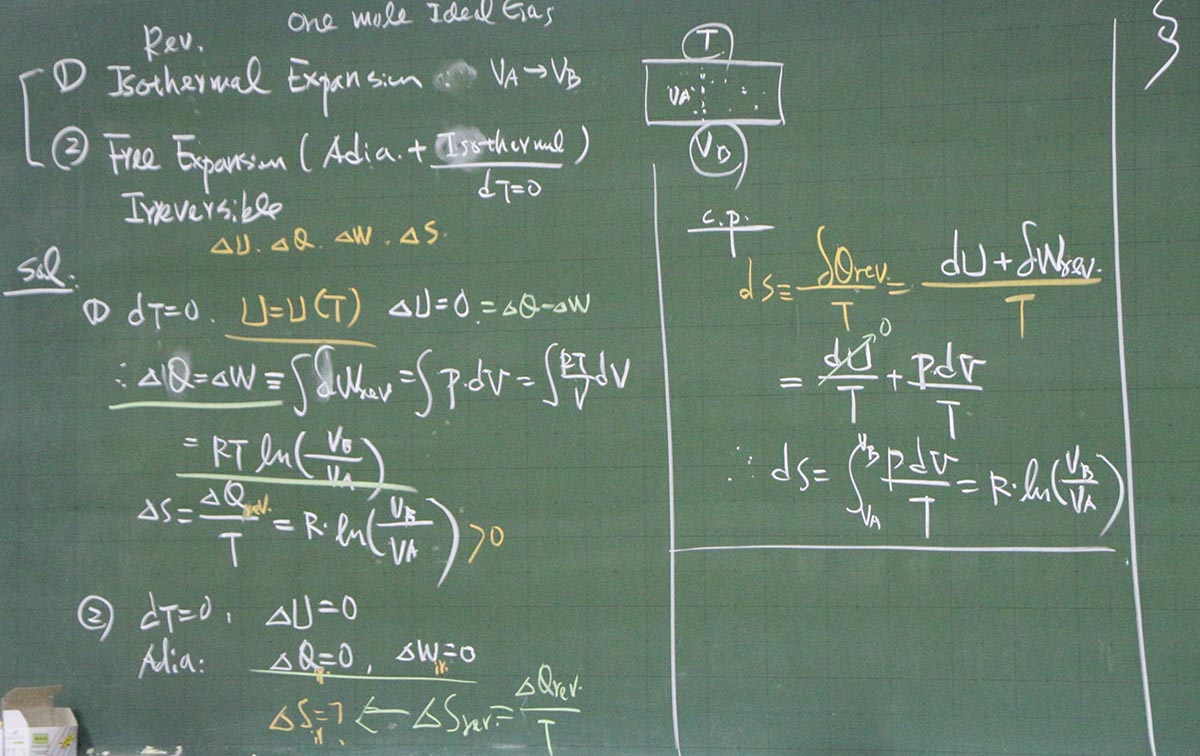 One mole Ideal Gas
Rev.
① Isothermal Expansion VA→VB
② Free Expansion (Adia. + Isothermal)
dT=0
Irreversible
ΔU. ΔQ. ΔW. ΔS.
Sol.
① dT=0. U=U(T) ΔU=0 = ΔQ-ΔW
∴ ΔQ=ΔW ≡ ∫δWrev = ∫P.dV = ∫RT/V dV
= RT ln(VB/VA)
ΔS = ΔQrev./T = R·ln(VB/VA) >0
② dT=0, ΔU=0
Adia: ΔQir.=0, ΔWir.=0
ΔSir.=? ← ΔSrev=ΔQrev./T
T
VA
VB
c.p.
dS≡ δQrev./T = dU+δWrev./T
= dU/T→0 + P.dV/T
∴ dS= ∫VA VB PdV/T = R·ln(VB/VA)